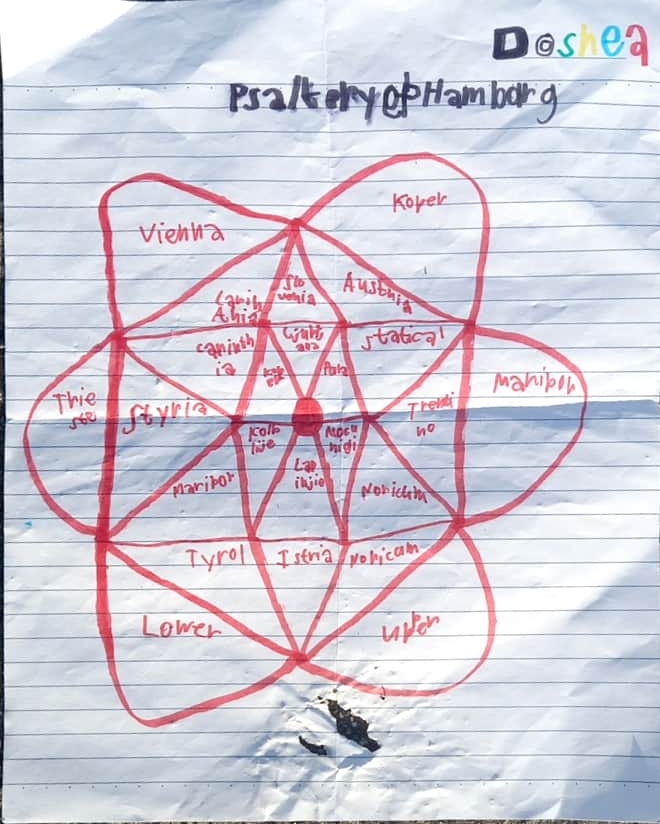 Doshea
Psaltery of Hamborg
Koper
Vienna
Slo
venia
Austria
Carin
thia
Ljubl
ana
statical
carinth
ia
Pola
Manibor
Thie
ste
Styria
Trenti
no
Kolb
Mocu
nigi
Lap
injie
Maribor
Noricum
Tyrol
Istria
Noricum
Lower
Upper